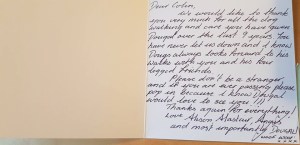 Dear Colin,
We would like to thank
you very much for all the dog
walking and care you have given
Dougal over the last 9 years. You
have never let us down and I know
Dougs always looks forward to his
walks with you and his four
legged friends.
Please don't be a stranger,
and if you are ever passing please
pop in because I know Dougal
would love to see you !!)
Thanks again for everything!
Love Alison, Alastair,
and most importantly DOUGAL!
woof woof